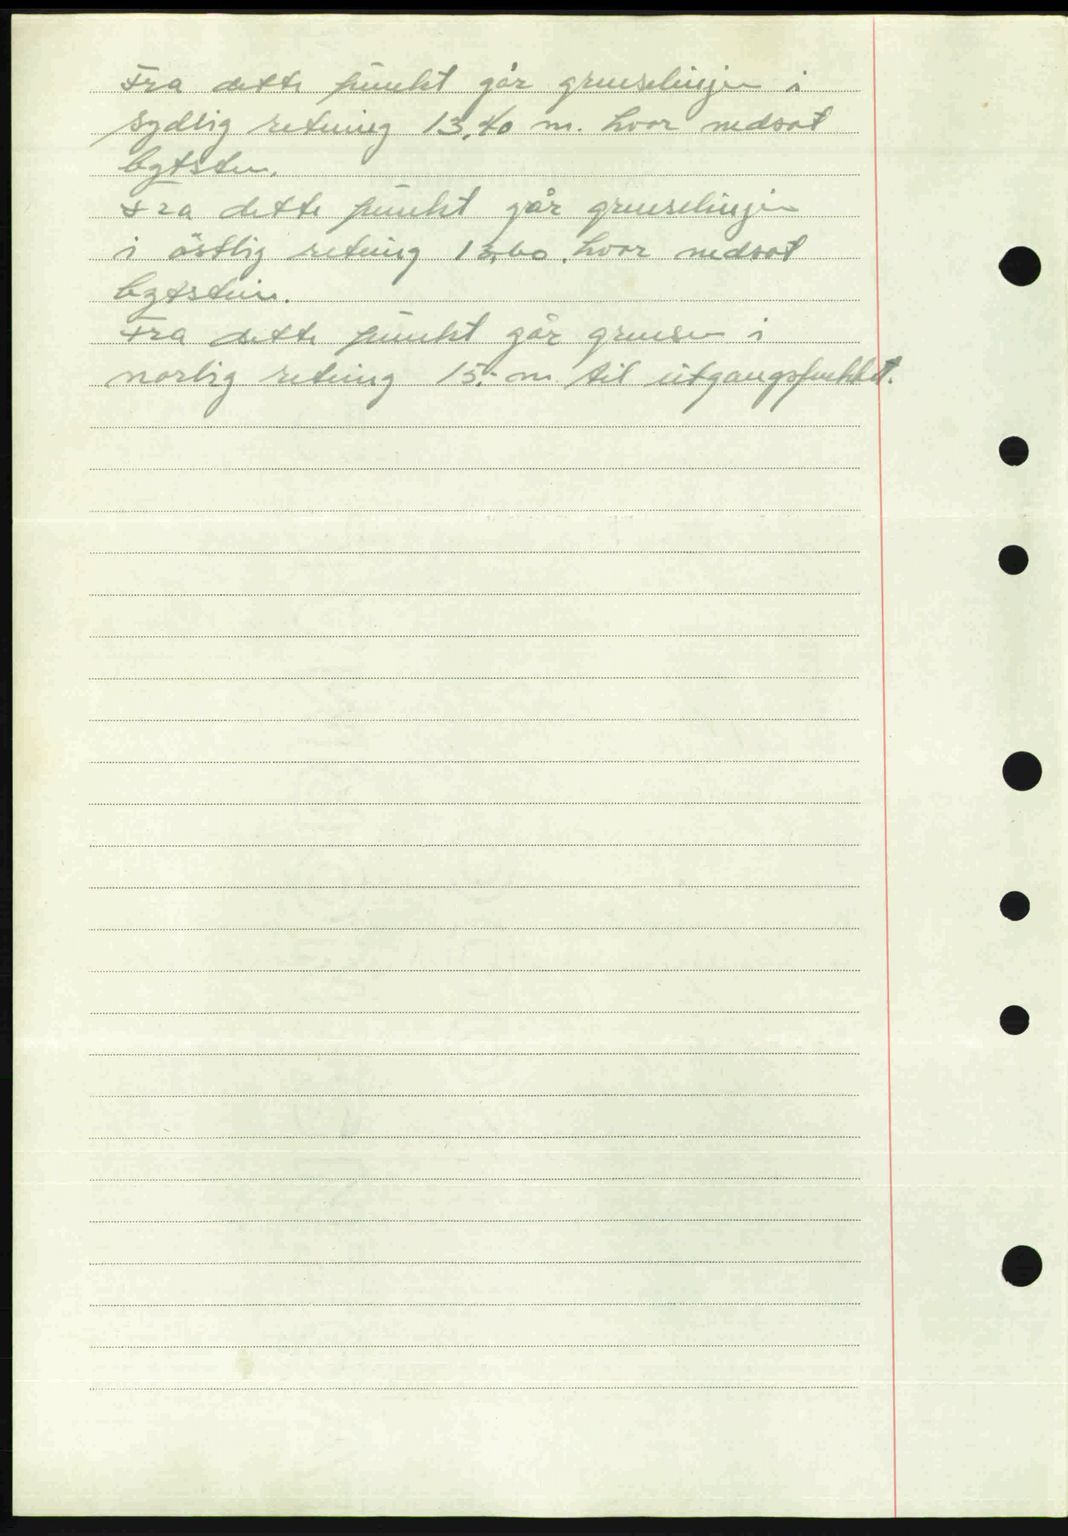 Fra dette punkt går grenselinjen i
sydlig retning 13,40 m. hvor nedsat
bytsten.
Fra dette punkt går grenselinjen
i östlig retning 13,60. hvor nedsat
bytstein.
Fra dette punkt går grensen i
norlig retning 15.- m til utgangspunktet.